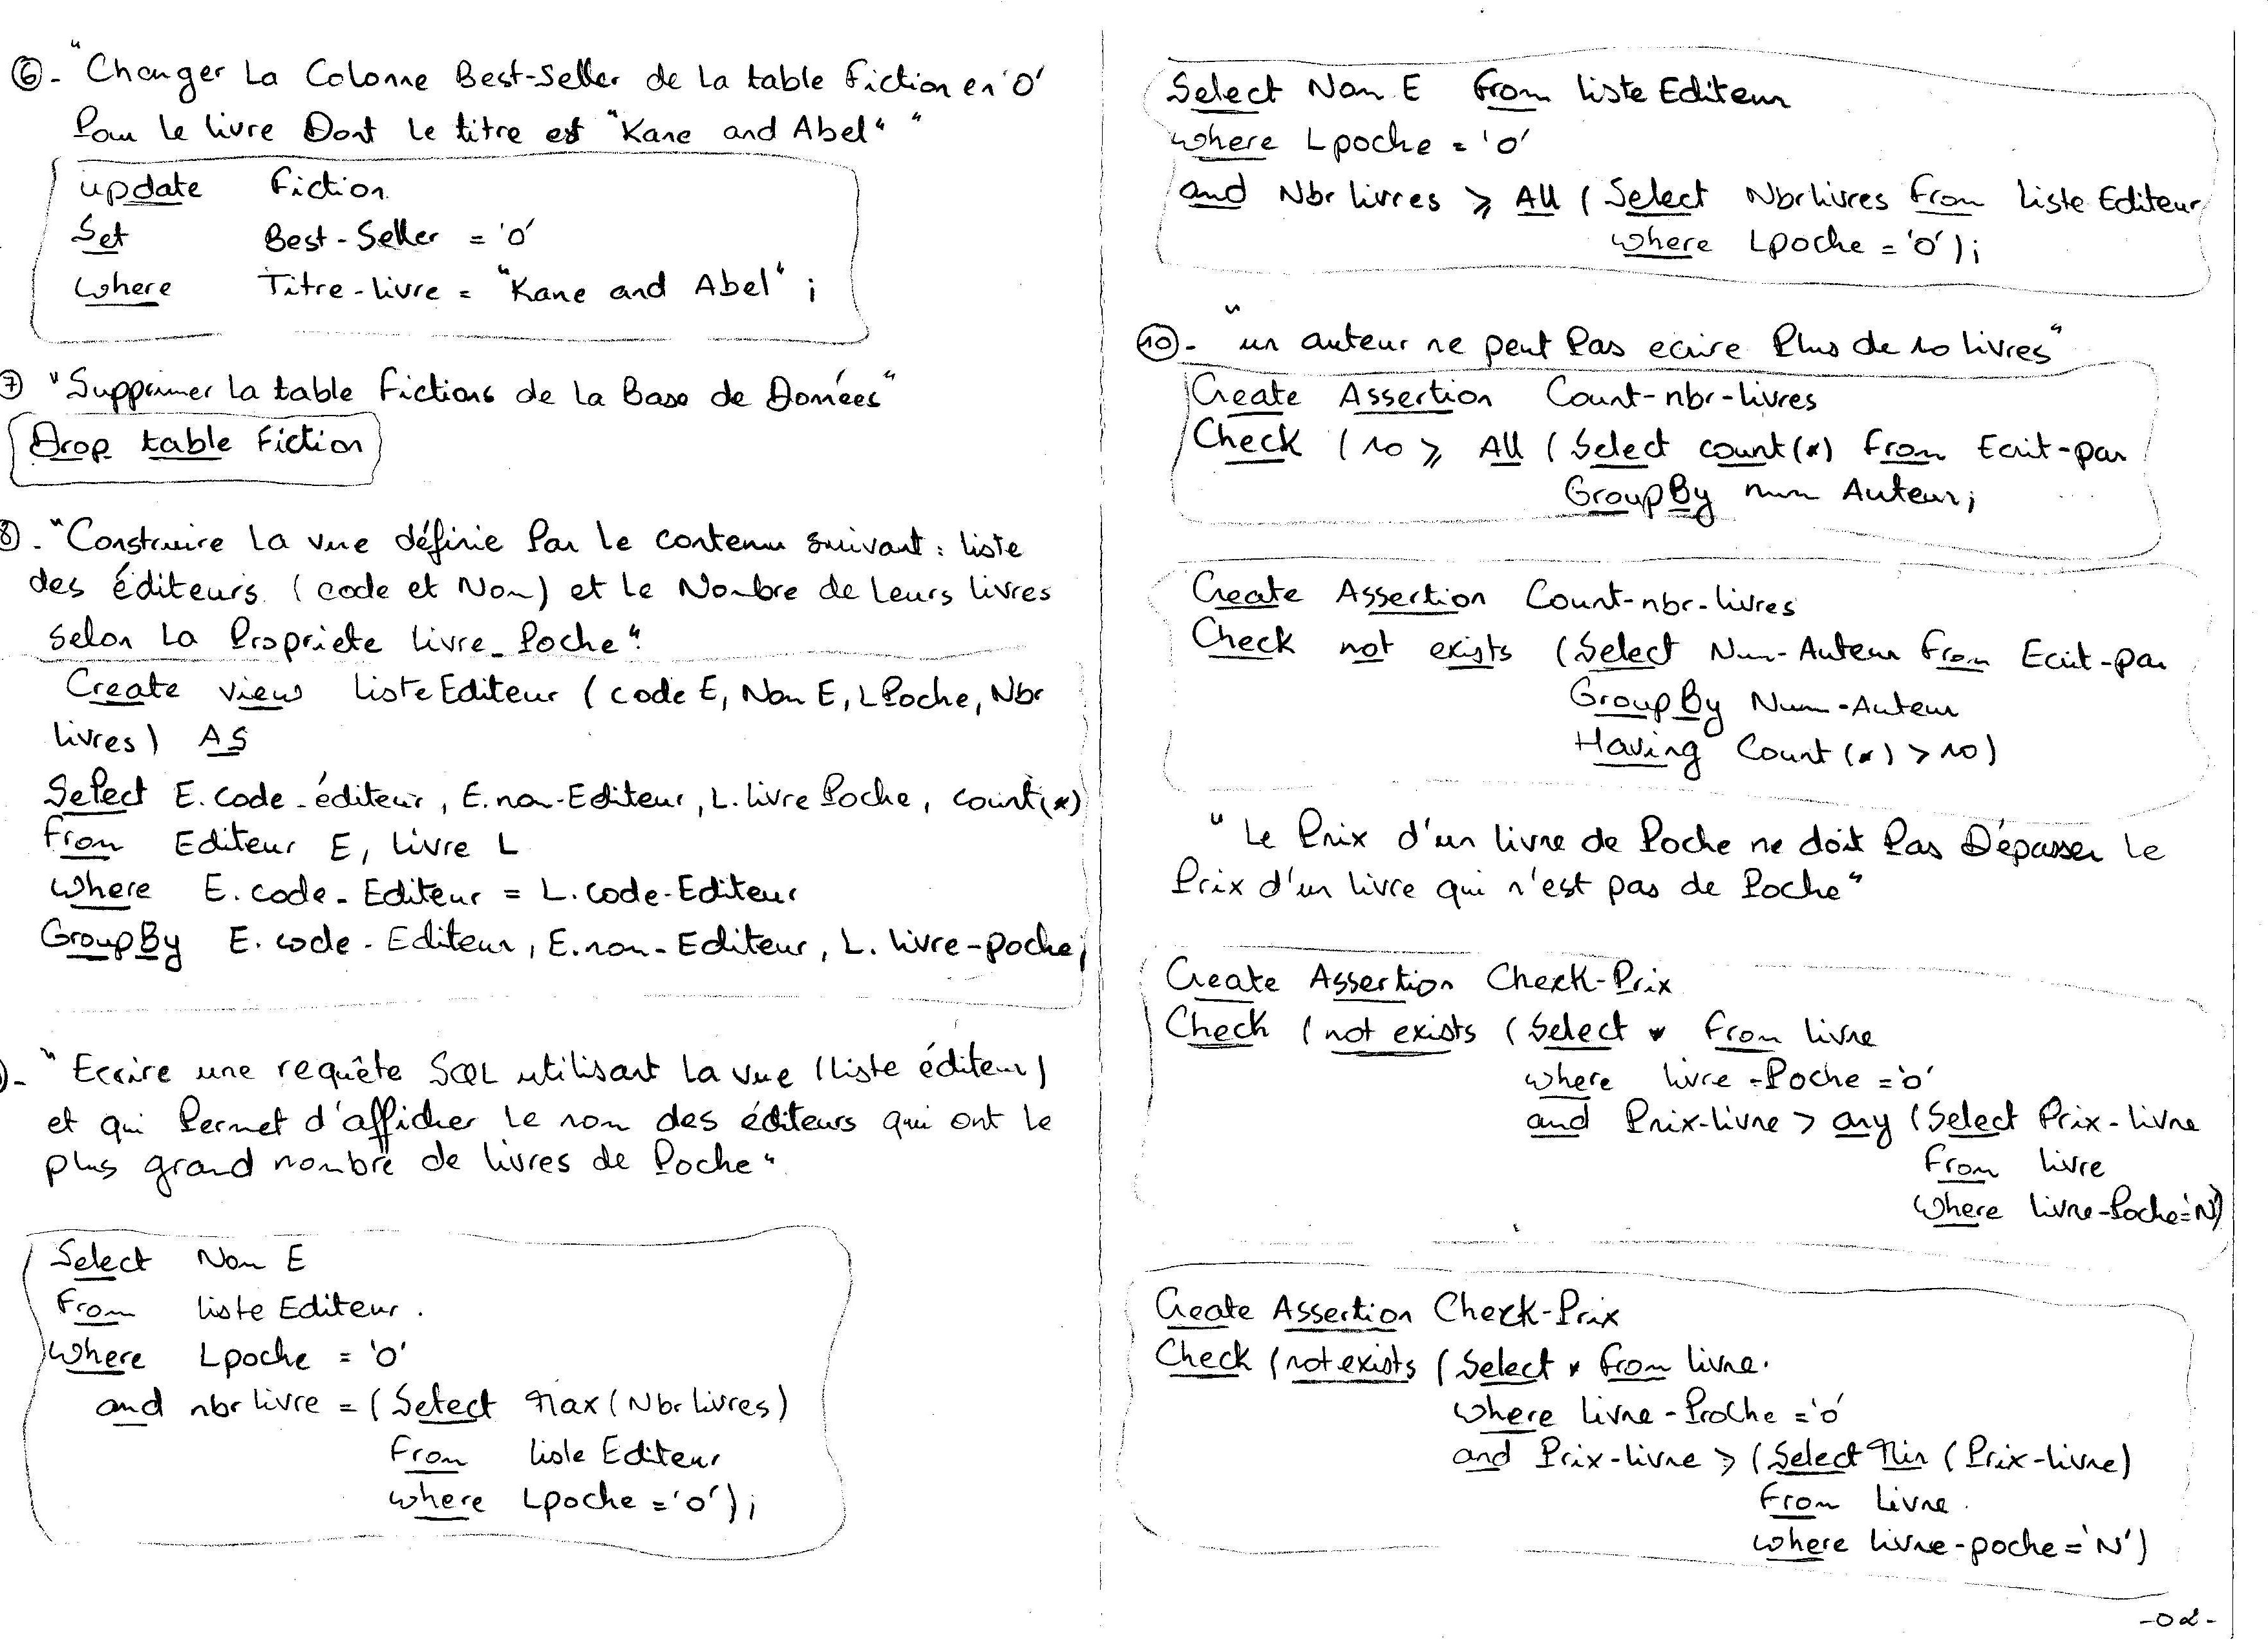 ⑥- "Changer La Colonne Best-Seller de La table Fiction en 'O'
Pour Le livre Dont Le titre est "Kane and Abel" "
update Fiction
Set Best-Seller = 'O'
where Titre-livre = "Kane and Abel" ;
⑦ "Supprimer La table Fictions de La Base de Données"
Drop table Fiction
8. "Construire La vue définie Par Le contenu suivant : liste
des éditeurs (code et Nom) et Le Nombre de Leurs livres
Selon La Propriete livre_Poche"
Create view liste Editeur (code E, Nom E, L Poche, Nbr
livres) AS
Select E.code-éditeur, E.nom-Editeur, L.livre Poche, count(*)
From Editeur E, livre L
where E.code-Editeur = L.code-Editeur
Group By E.code-Editeur, E.nom-Editeur, L.livre-poche;
- "Ecrire une requête SQL utilisant La vue (liste éditeur)
et qui Permet d'afficher Le nom des éditeurs qui ont Le
plus grand nombre de livres de Poche"
Select Nom E
From liste Editeur.
where Lpoche = 'O'
and nbr livre = (Select Max(Nbr livres)
From liste Editeur
where Lpoche = 'O');
Select Nom E From liste Editeur
where Lpoche = 'O'
and Nbr livres ⩾ All (Select Nbr livres From liste Editeur
where Lpoche = 'O');
⑩- "un auteur ne peut Pas ecrire Plus de 10 livres"
Create Assertion Count-nbr-livres
Check (10 ⩾ All (Select count(*) From Ecrit-par
Group By num Auteur;
Create Assertion Count-nbr-livres
Check not exists (Select Num-Auteur From Ecrit-par
Group By Num-Auteur
Having Count(*) > 10)
"Le Prix d'un livre de Poche ne doit Pas Dépasser Le
Prix d'un livre qui n'est pas de Poche"
Create Assertion Check-Prix
Check (not exists (Select * From livre
where livre-Poche = 'O'
and Prix-livre > any (Select Prix-livre
From livre
where livre-Poche = 'N')
Create Assertion Check-Prix
Check (not exists (Select * From livre.
where livre-Proche = 'O'
and Prix-livre ⩾ (Select Min (Prix-livre)
From Livre.
where livre-poche = 'N')
-02-